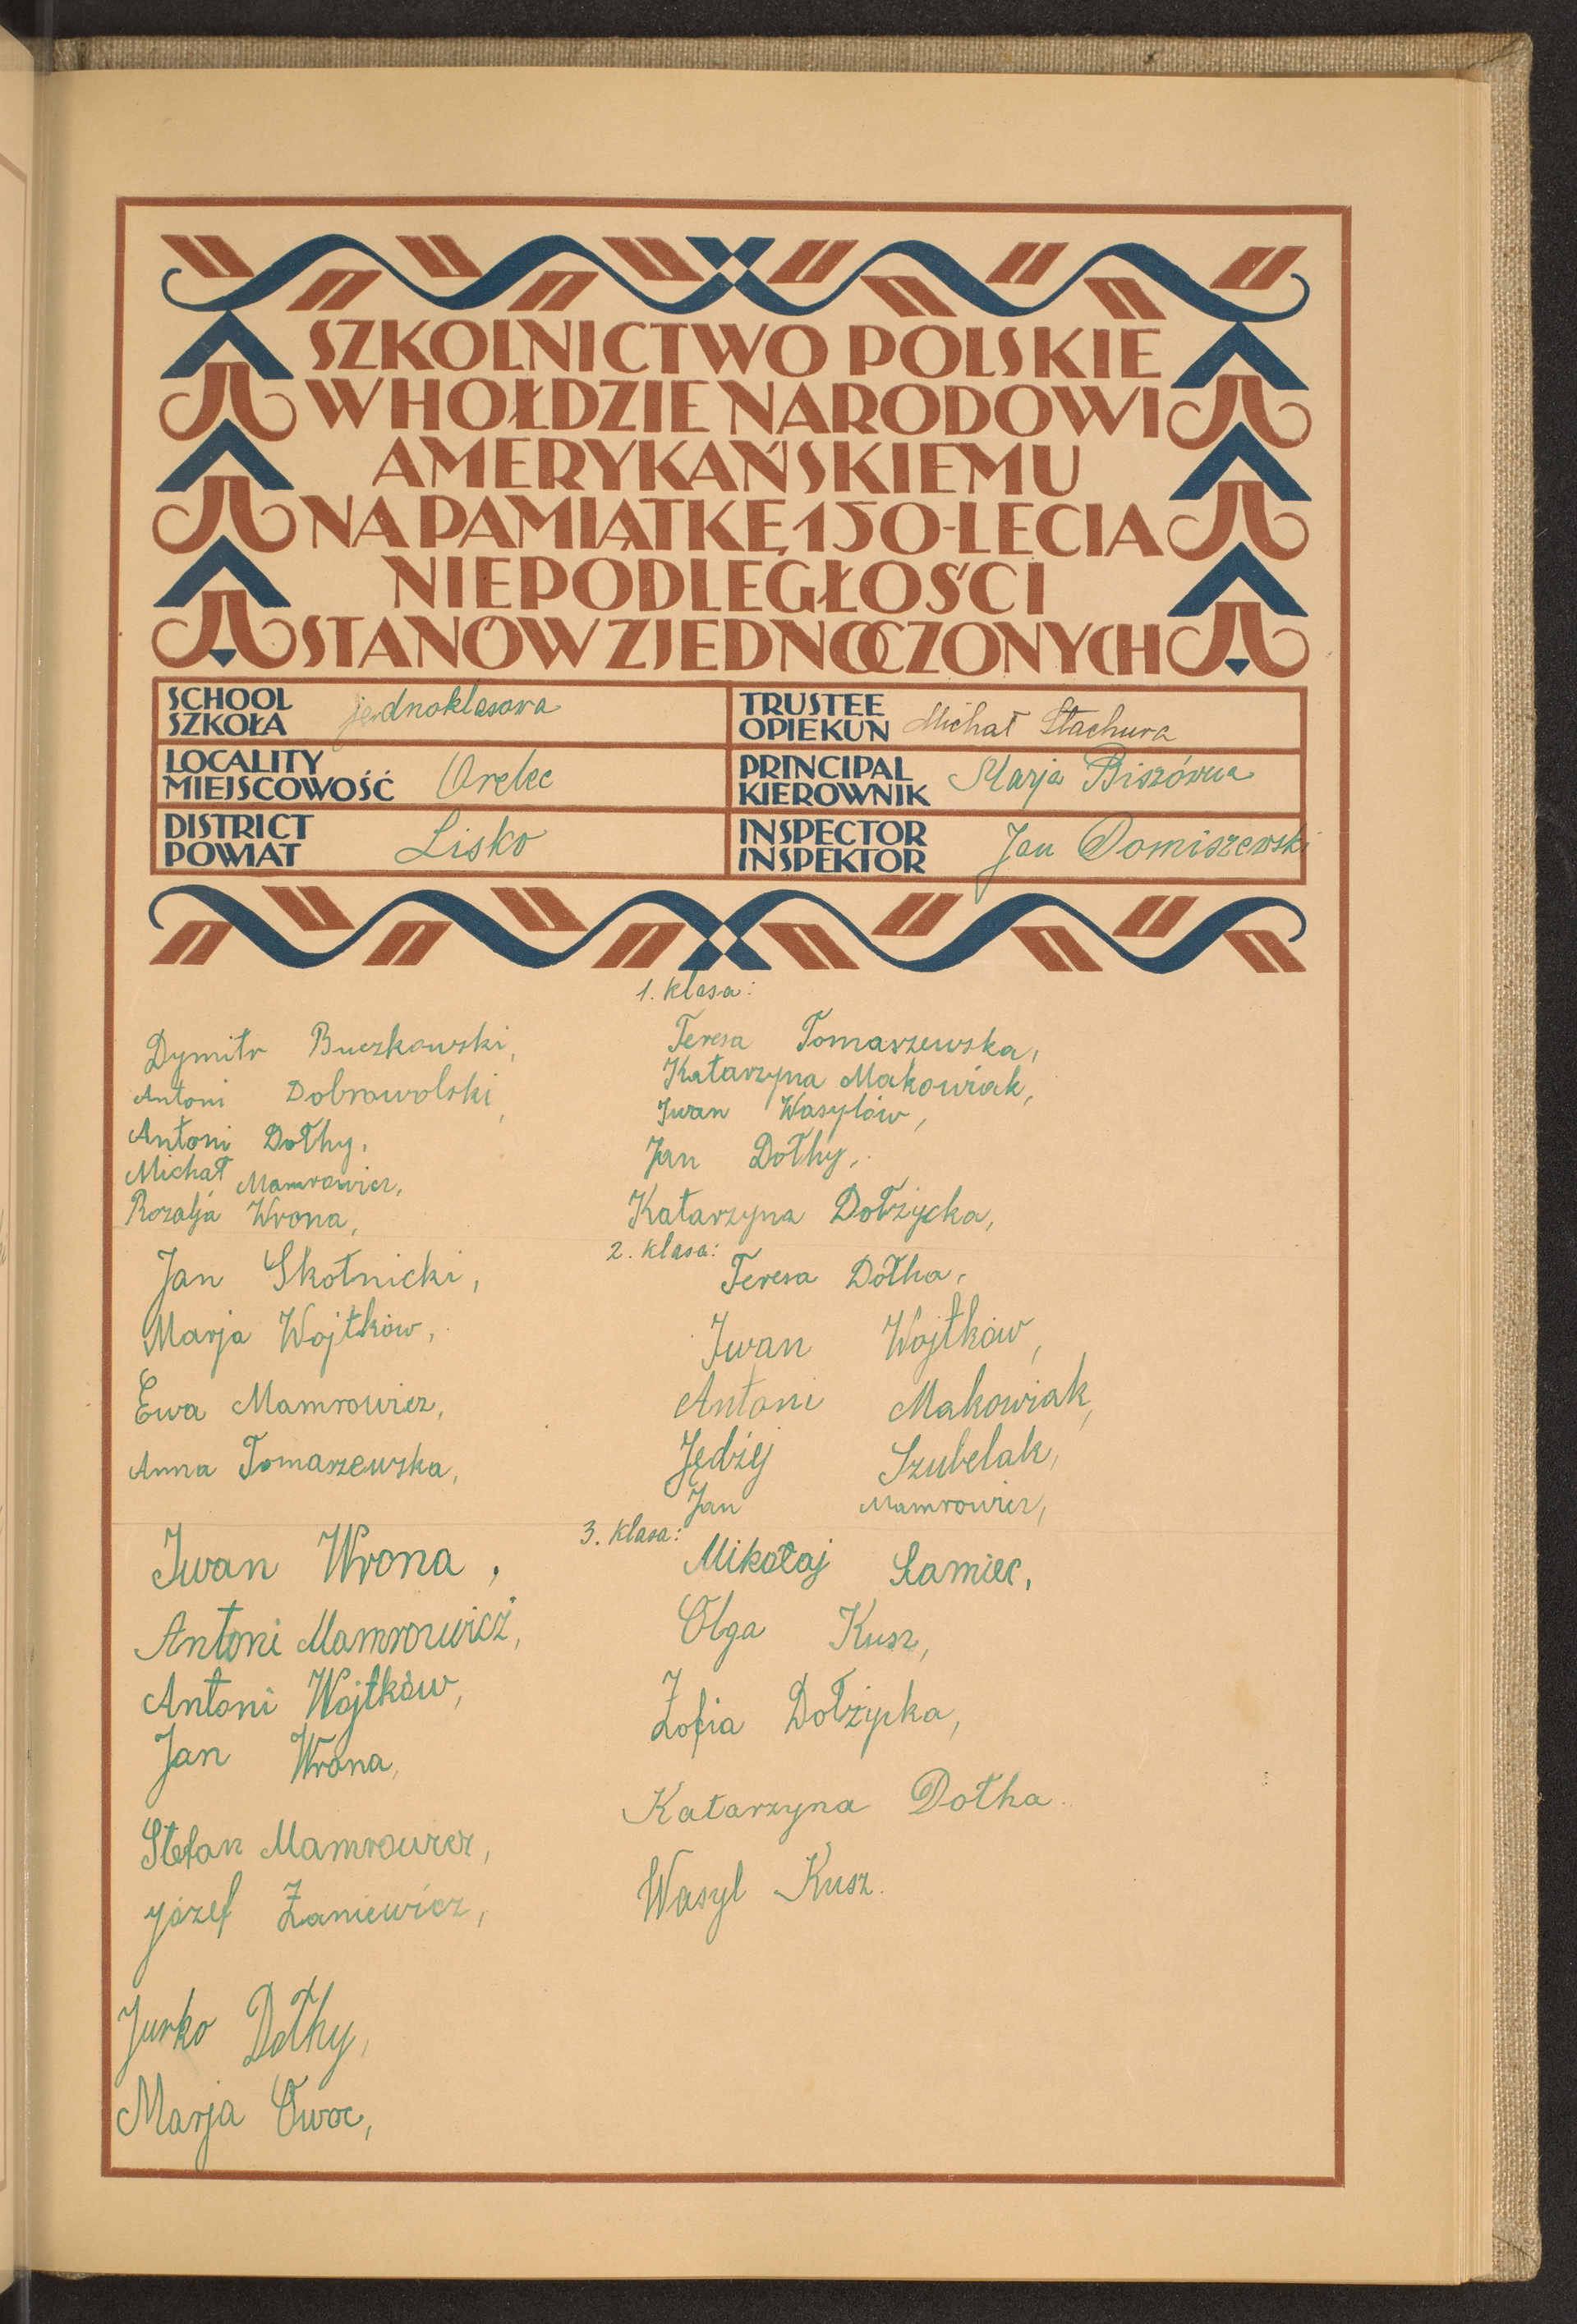 SZKOLNICTWO POLSKIE
W HOŁDZIE NARODOWI
AMERYKAŃSKIEMU
NA PAMIĄTKĘ 150-LECIA
NIEPODLEGŁOŚCI
STANÓW ZJEDNOCZONYCH
SCHOOL
SZKOŁA
jednoklasowa
TRUSTEE
OPIEKUN
Michał Stachura
LOCALITY
MIEJSCOWOŚĆ
Orelec
PRINCIPAL
KIEROWNIK
Marja Biszówna
DISTRICT
POWIAT
Lisko
INSPECTOR
INSPEKTOR
Jan Domiszewski
1. klasa:
Dymitr Buczkowski,
Antoni Dobrowolski,
Antoni Dołhy,
Michał Mamrowicz,
Rozalja Wrona,
Teresa Tomaszewska,
Katarzyna Makowiak,
Iwan Wasylów,
Jan Dołhy,
Katarzyna Dołżycka,
2. klasa:
Jan Skotnicki,
Marja Wojtków,
Ewa Mamrowicz,
Anna Tomaszewska,
Teresa Dołha,
Iwan Wojtków,
Antoni Makowiak,
Jędżej Szubelak,
Jan Mamrowicz,
3. klasa:
Iwan Wrona,
Antoni Mamrowicz,
Antoni Wojtków,
Jan Wrona,
Stefan Mamrowicz,
Józef Zaniewicz,
Jurko Dołhy,
Marja Owoc,
Mikołaj Łamiec,
Olga Kusz,
Zofia Dołżycka,
Katarzyna Dołha.
Wasyl Kusz.